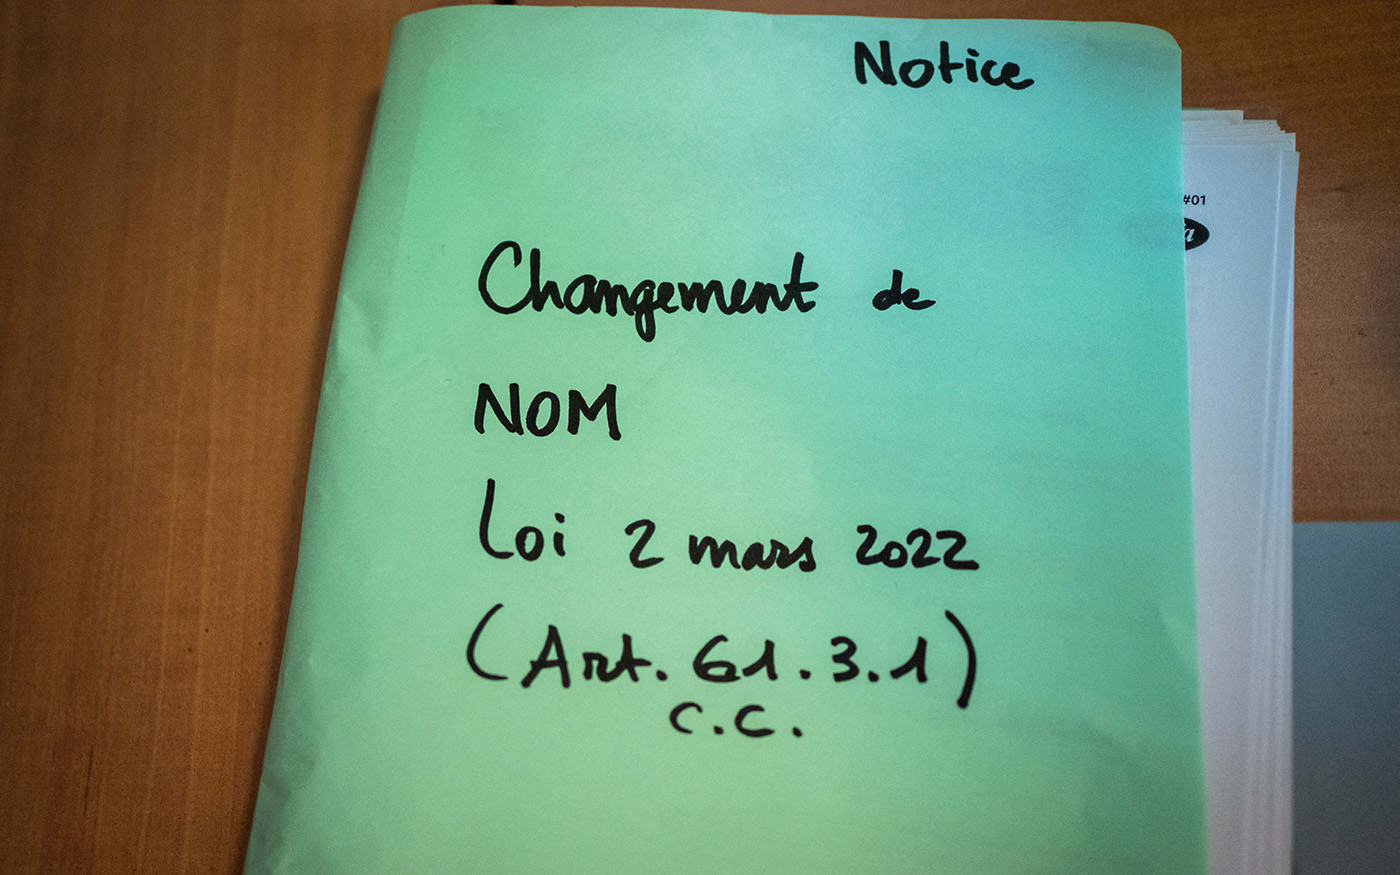 Notice
Changement de
NOM
Loi 2 mars 2022
(Art. 61.3.1)
C.C.
#01